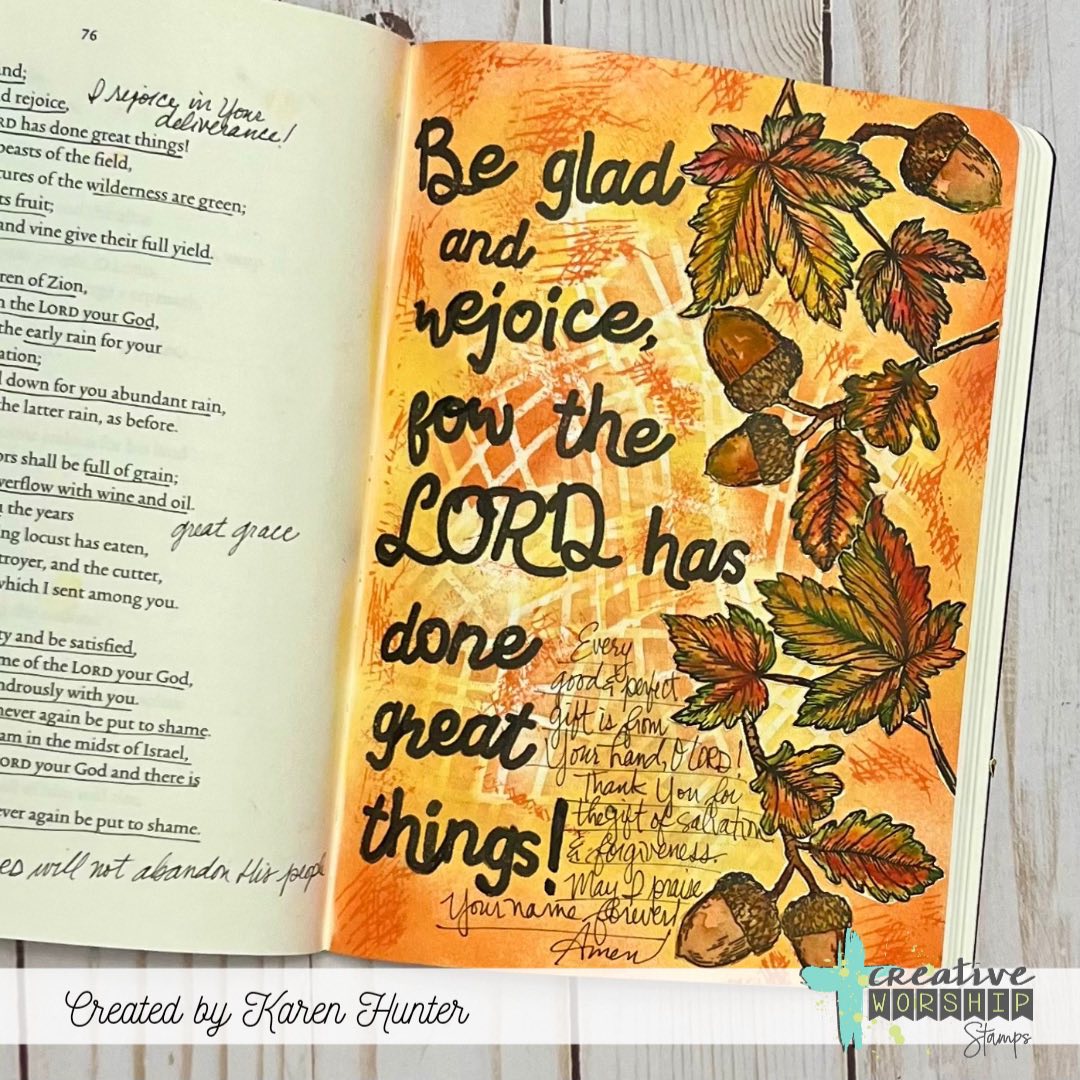 76
nd;
d rejoice,
I rejoice in Your
deliverance!
ORD has done great things!
beasts of the field,
tures of the wilderness are green;
ts fruit;
and vine give their full yield.
ren of Zion,
n the LORD your God,
the early rain for your
ation;
d down for you abundant rain,
the latter rain, as before.
ors shall be full of grain;
verflow with wine and oil.
the years
great grace
ing locust has eaten,
troyer, and the cutter,
which I sent among you.
ty and be satisfied,
me of the LORD your God,
ndrously with you.
never again be put to shame.
am in the midst of Israel,
ORD your God and there is
ever again be put to shame.
will not abandon His people
Be glad
and
rejoice,
for the
LORD has
done
great
things!
Every
good & perfect
gift is from
Your hand, O LORD!
Thank You for
the gift of salvation
& forgiveness.
May I praise
Your name forever!
Amen
Created by Karen Hunter
CREATIVE
WORSHIP
Stamps